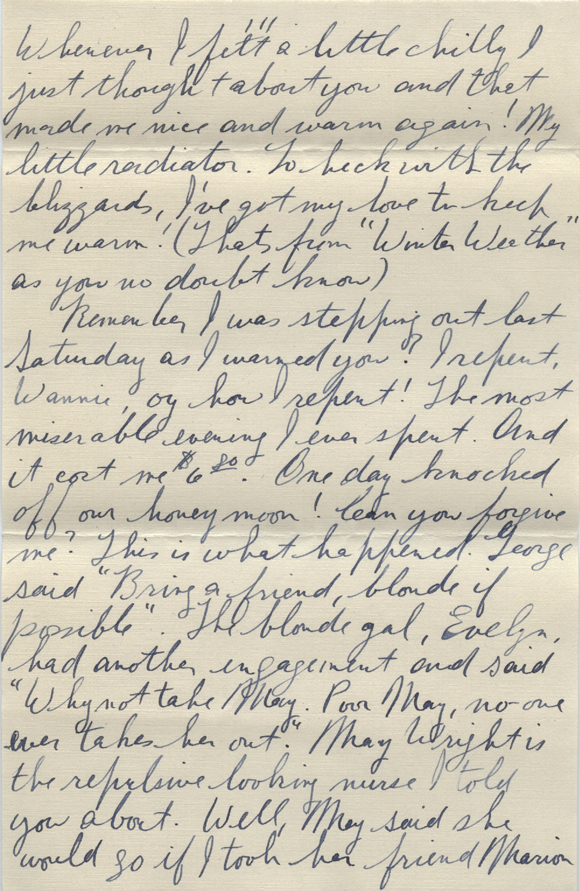 Whenever I felt a little chilly I
just thought about you and that
made me nice and warm again! My
little radiator. To heck with the
blizzards, I've got my love to keep
me warm! (Thats from "Winter Weather"
as you no doubt know)
Remember I was stepping out last
Saturday as I warned you? I repent,
Wannie, oy how I repent! The most
miserable evening I ever spent. And
it cost me $6 80. One day knocked
off our honeymoon! Can you forgive
me? This is what happened. George
said "Bring a friend, blonde if
possible". The blonde gal, Evelyn,
had another engagement and said
"Why not take May. Poor May, no-one
ever takes her out." May Wright is
the repulsive looking nurse I told
you about. Well, May said she
would go if I took her friend Marion